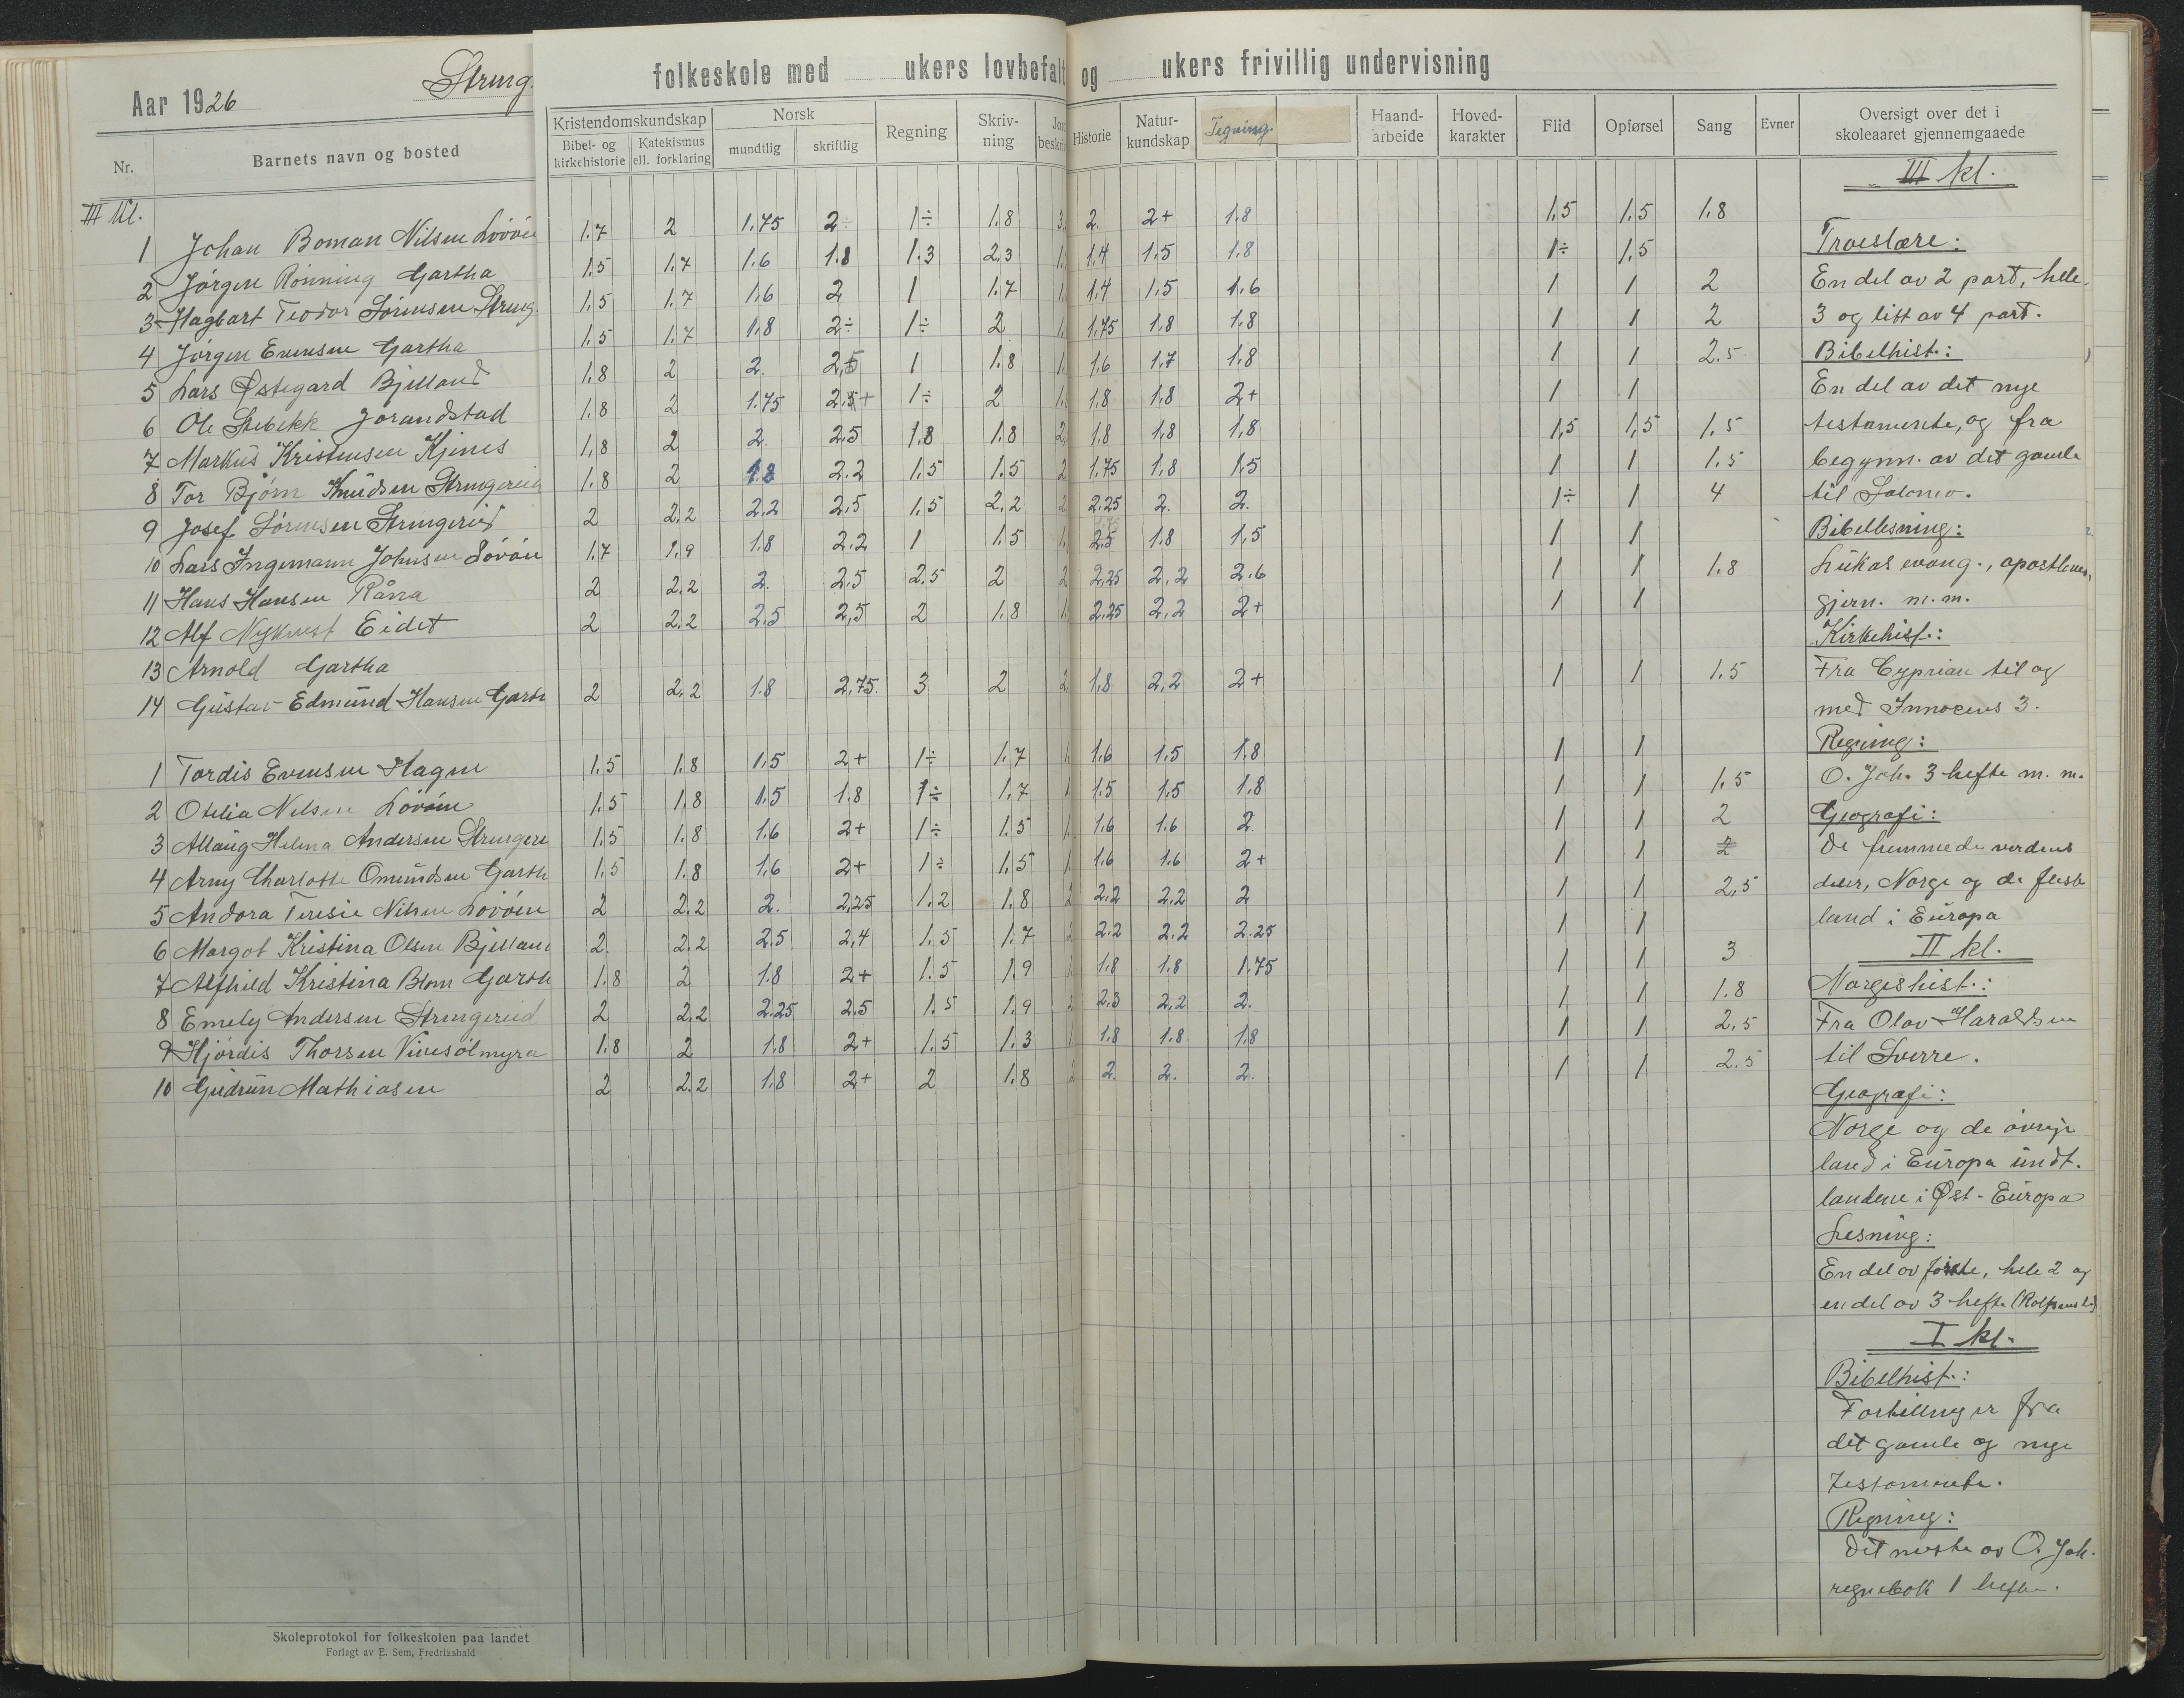 Aar 1926
Streng
folkeskole med ukers lovbefalt og ukers frivillig undervisning
Nr. Barnets navn og bosted Kristendomskundskap Bibel- og kirkehistorie Katekismus ell. forklaring Norsk mundtlig skriftlig Regning Skriv-ning Jord beskriv Historie Natur-kundskap Tegning Haand-arbeide Hoved-karakter Flid Opførsel Sang Evner Oversigt over det i skoleaaret gjennemgaaede
III kl.
1 Johan Boman Nilsen Lövöen 1.7 2 1.75 2÷ 1÷ 1.8 3. 2. 2+ 1.8 1,5 1.5 1.8
2 Jörgen Rönning Gartha 1.5 1.7 1.6 1.8 1.3 2,3 1. 1.4 1.5 1.8 1÷ 1.5
3 Hagbart Teodor Sörensen Streng. 1.5 1.7 1.6 2 1 1.7 1. 1.4 1.5 1.6 1 1 2
4 Jörgen Evensen Gartha 1.5 1.7 1.8 2÷ 1÷ 2 1. 1.75 1.8 1.8 1 1 2
5 Lars Østegard Bjelland 1.8 2 2. 2,5 1 1.8 1. 1.6 1.7 1.8 1 1 2.5
6 Ole Stebekk Jorandstad 1.8 2 1.75 2.5+ 1÷ 2 1. 1.8 1.8 2+ 1 1
7 Markus Kristensen Kjenes 1,8 2 2. 2.5 1.8 1.8 2. 1.8 1.8 1,8 1,5 1,5 1.5
8 Tor Bjørn Knudsen Strengereid 1.8 2 1.8 2.2 1.5 1.5 2 1.75 1.8 1.5 1 1 1.5
9 Josef Sörensen Strengereid 2 2.2 2.2 2.5 1.5 2,2 2 2.25 2. 2. 1÷ 1 4
10 Lars Ingemann Johnsen Lövöen 1.7 1.9 1.8 2.2 1 1.5 1. 2.5 1.8 1,5 1 1
11 Hans Hansen Råna 2 2.2 2. 2.5 2.5 2 2 2,25 2,2 2.6 1 1 1.8
12 Alf Nykvest Eidet 2 2.2 2.5 2,5 2 1.8 1. 2.25 2,2 2+ 1 1
13 Arnold Gartha
14 Gustav Edmund Hansen Garth 2 2.2 1.8 2,75. 3 2 2 1.8 2,2 2+ 1 1 1.5
1 Tordis Evensen Hagen 1.5 1.8 1.5 2+ 1÷ 1.7 1. 1.6 1.5 1.8 1 1
2 Otilia Nilsen Lövöen 1.5 1.8 1.5 1.8 1÷ 1.7 1 1.5 1.5 1.8 1 1 1.5
3 Allaug Helena Andersen Strengere 1.5 1.8 1.6 2+ 1÷ 1.5 1. 1.6 1.6 2. 1 1 2
4 Arny Charlotte Omundsen Garth 1.5 1.8 1.6 2+ 1÷ 1.5 1. 1.6 1.6 2+ 1 1 2
5 Andora Teresie Nilsen Lövöen 2 2.2 2. 2,25 1.2 1.8 2 2.2 2.2 2 1 1 2,5
6 Margot Kristina Olsen Bjelland 2 2.2 2.5 2,4 1.5 1.7 2 2.2 2.2 2.25 1 1
7 Alfhild Kristina Blom Garth 1.8 2 1.8 2+ 1.5 1.9 1 1.8 1.8 1.75 1 1 3
8 Emely Andersen Strengereid 2 2.2 2.25 2.5 1.5 1.9 2 2.3 2,2 2. 1 1 1.8
9 Hjördis Thorsen Vinesölmyra 1.8 2 1.8 2+ 1.5 1.3 1 1.8 1.8 1.8 1 1 2,5
10 Gudrun Mathiasen 2 2.2 1.8 2+ 2 1.8 2 2. 2. 2. 1 1 2.5
III kl.
Troeslære:
En del av 2 part, hele
3 og litt av 4 part.
Bibelhist.:
En del av det nye
testamente, og fra
begynn. av det gamle
til Salomo.
Bibellesning:
Lukas evang., apostlenes
gjern. m.m.
Kirkehist.:
Fra Cyprian til og
med Innocens 3.
Regning:
O. Joh. 3 hefte m. m.
Geografi:
De fremmede verdens
deler, Norge og de fleste
land i Europa
II kl.
Norgeshist.:
Fra Olav Haraldsen
til Sverre.
Geografi:
Norge og de övrige
land i Europa undt.
landene i Øst-Europa
Lesning:
En del av förste, hele 2 og
en del av 3 hefte (Rolfsens l.)
I kl.
Bibelhist.:
Fortellinger fra
det gamle og nye
testamente.
Regning:
Det meste av O. Joh.
regnebok 1 hefte.
Skoleprotokol for folkeskolen paa landet
Forlagt av E. Sem, Fredrikshald